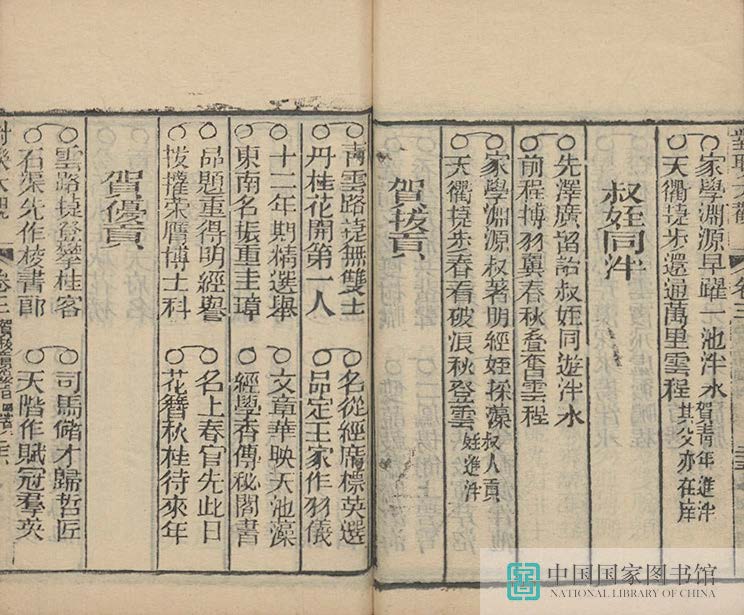 對聯大觀 卷三
家學淵源早躍一池泮水
天衢捷步還通萬里雲程 賀青年進泮其父亦在庠
叔姪同泮
先澤廣詒叔姪同遊泮水
前程博羽翼春秋疊奮雲程
家學淵源叔著明經姪採藻
天衢捷步春看破浪秋登雲 叔人貢姪進泮
賀拔貢
青雲路捷無雙士 名從經席標英選
丹桂花開第一人 品定王家作羽儀
十二年期精選舉 文章華映天池藻
東南名振重圭璋 經學香傳秘閣書
品題重得明經譽 名上春官先此日
拔擢荣膺博士科 花簪秋桂待來年
賀優貢
雲路捷登攀桂客 司馬儲才歸哲匠
石渠先作校書郎 天階作賦冠羣英
對聯大觀 卷三
中国国家图书馆
NATIONAL LIBRARY OF CHINA